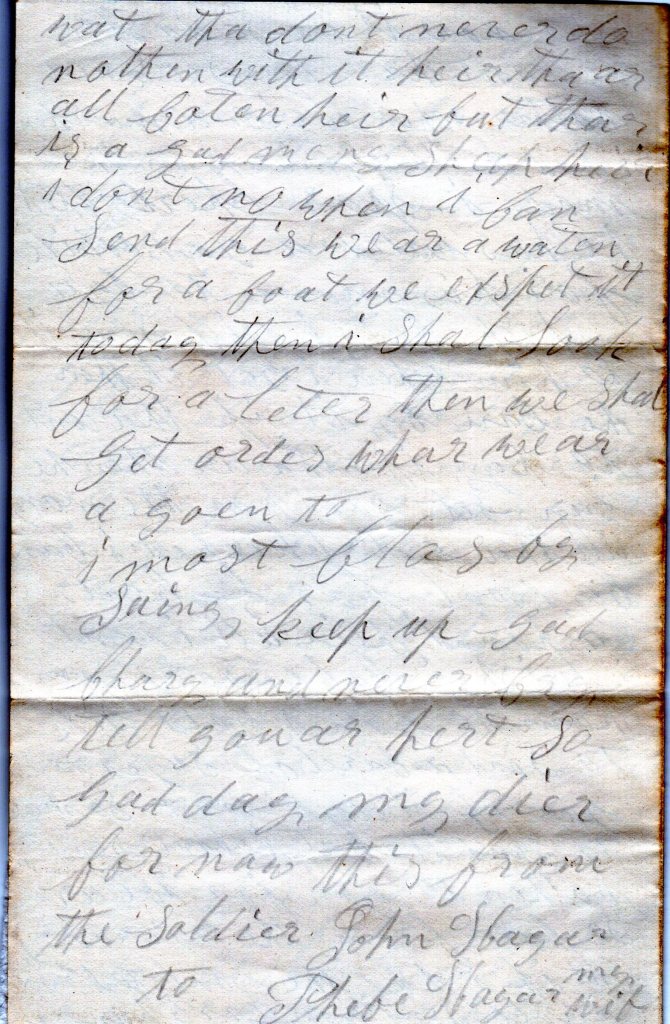 wat tha dont never do
nothen with it heir tha ar
all Coten heir but thar
is a gad meney sheap heir
i dont no when i Can
Send this wear a waten
for a boat we exspet it
today then i Shal Look
for a leter then we shal
Get ordes whar wear
a goen to
i most Clos by
Saing keep up gad
Charg and never Cry
till you ar hert So
Gad day my dier
for naw this from
the Soldier John Hagar
to Phebe Hagar my
wif